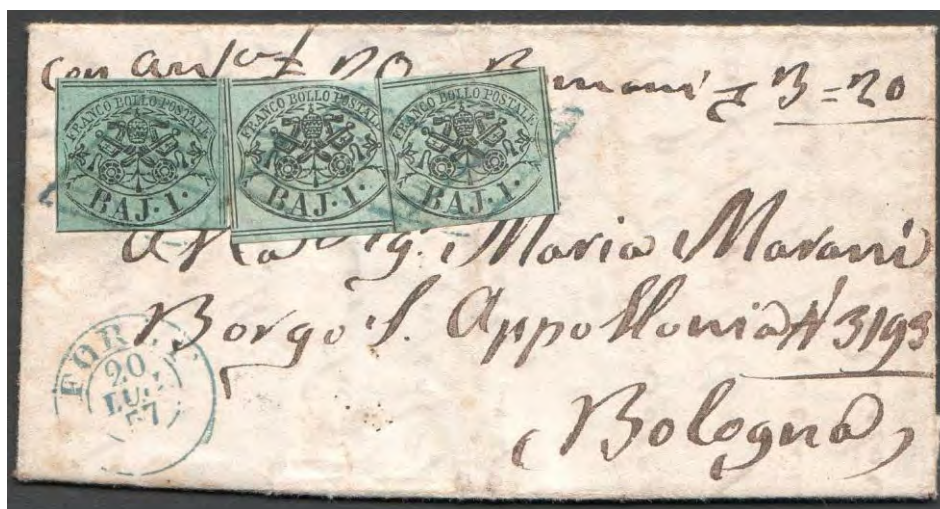 con 20 Romani 3=20
FRANCO BOLLO POSTALE
BAJ. 1.
FRANCO BOLLO POSTALE
BAJ. 1.
FRANCO BOLLO POSTALE
BAJ. 1.
Alla Sig. Maria Marani
Borgo S. Appollonia N 3193
Bologna
FOR
20
LUG
57